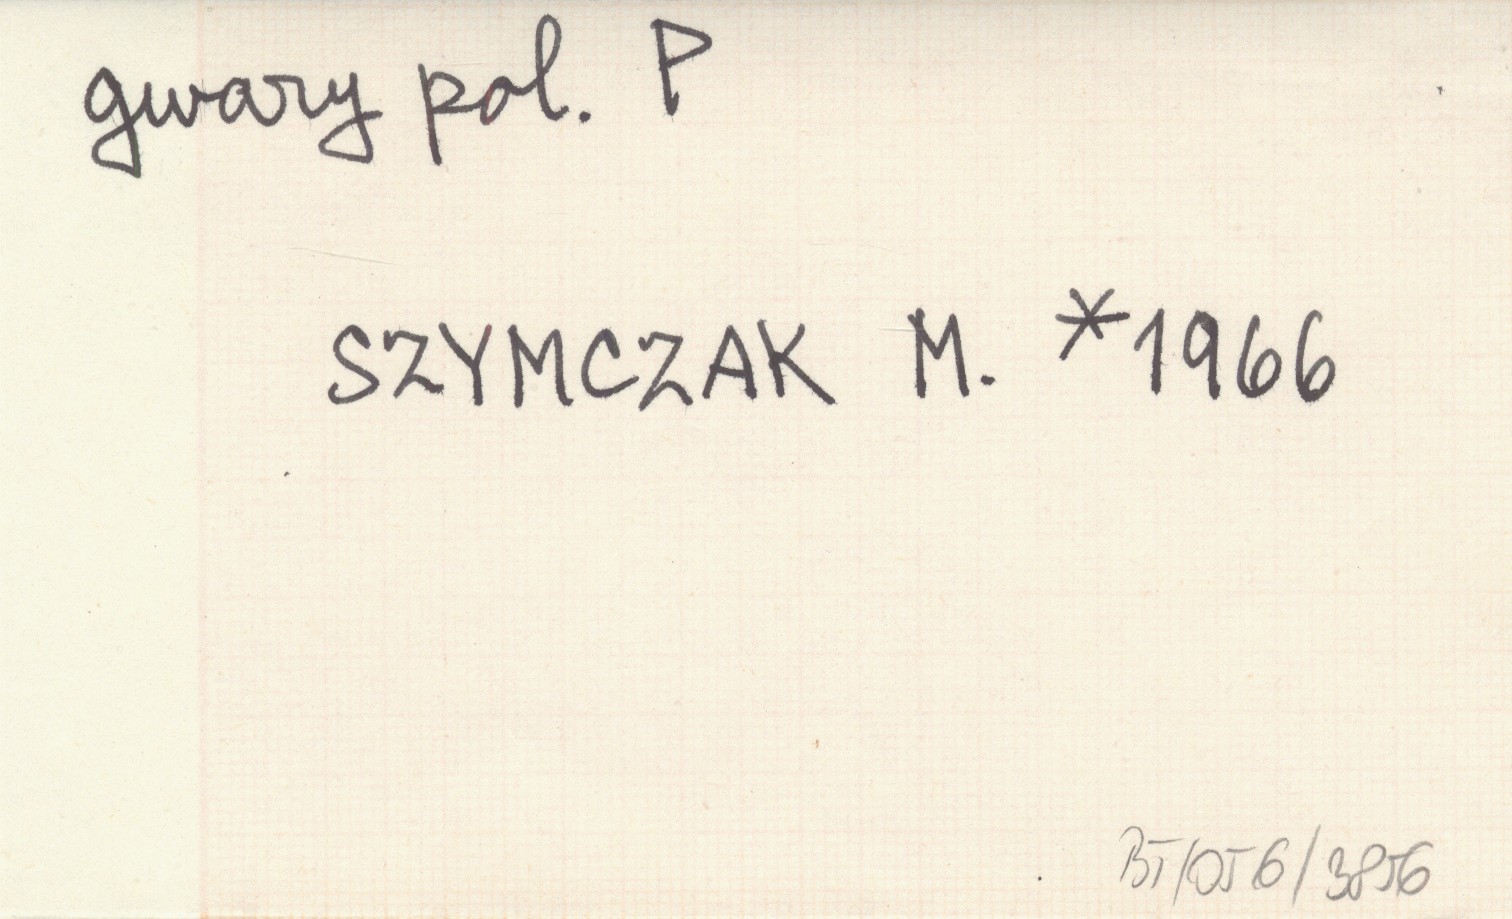 gwary pol. P
SZYMCZAK M. *1966
BT/056/3856